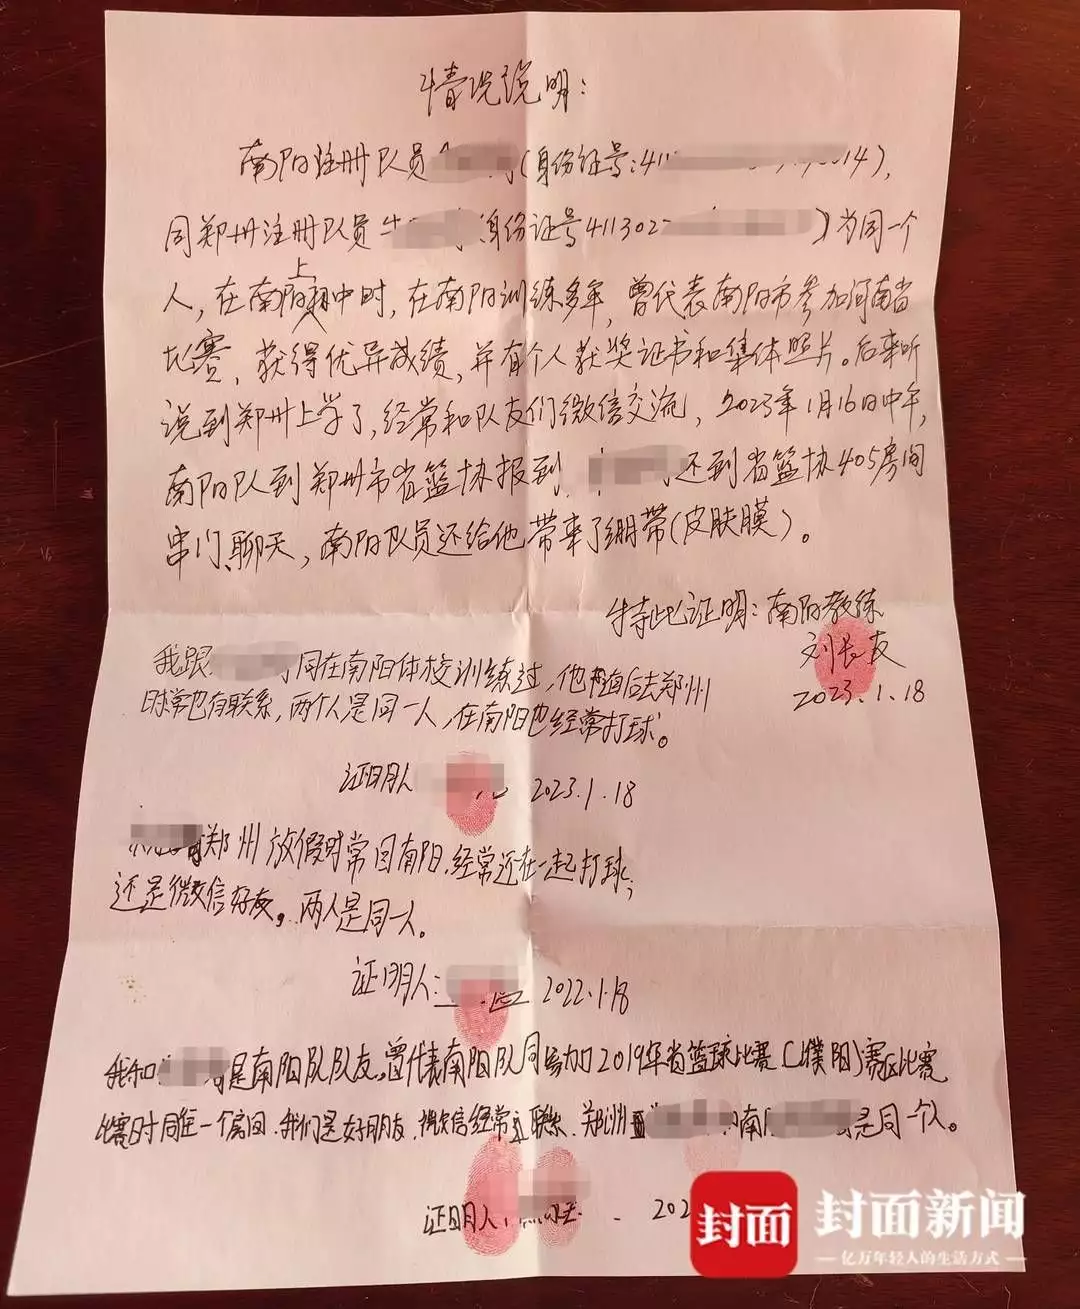 情况说明：
南阳注册队员 (身份证号:411 14),
同郑州注册队员牛 身份证号411302 )为同一个
人，在南阳上初中时，在南阳训练多年，曾代表南阳市参加河南省
比赛，获得优异成绩，并有个人获奖证书和集体照片。后来听
说到郑州上学了，经常和队友们微信交流，2023年1月16日中午，
南阳队到郑州市省篮协报到， 还到省篮协405房间
串门、聊天，南阳队员还给他带来了绷带(皮肤膜)。
特此证明：南阳教练
刘长友
2023.1.18
我跟 同在南阳体校训练过，他 后去郑州
时常也有联系，两个人是同一人，在南阳也经常打球。
证明人 2023.1.18
郑州放假时常回南阳，经常还在一起打球；
还是微信好友，两人是同一人。
证明人: 2022.1.18
我和 是南阳队队友，曾代表南阳队同参加2019年省篮球比赛(濮阳)赛区比赛
比赛时同住一个房间，我们是好朋友，微信经常互联系，郑州 南 是同一个人。
证明人 202
封面 封面新闻
亿万年轻人的生活方式